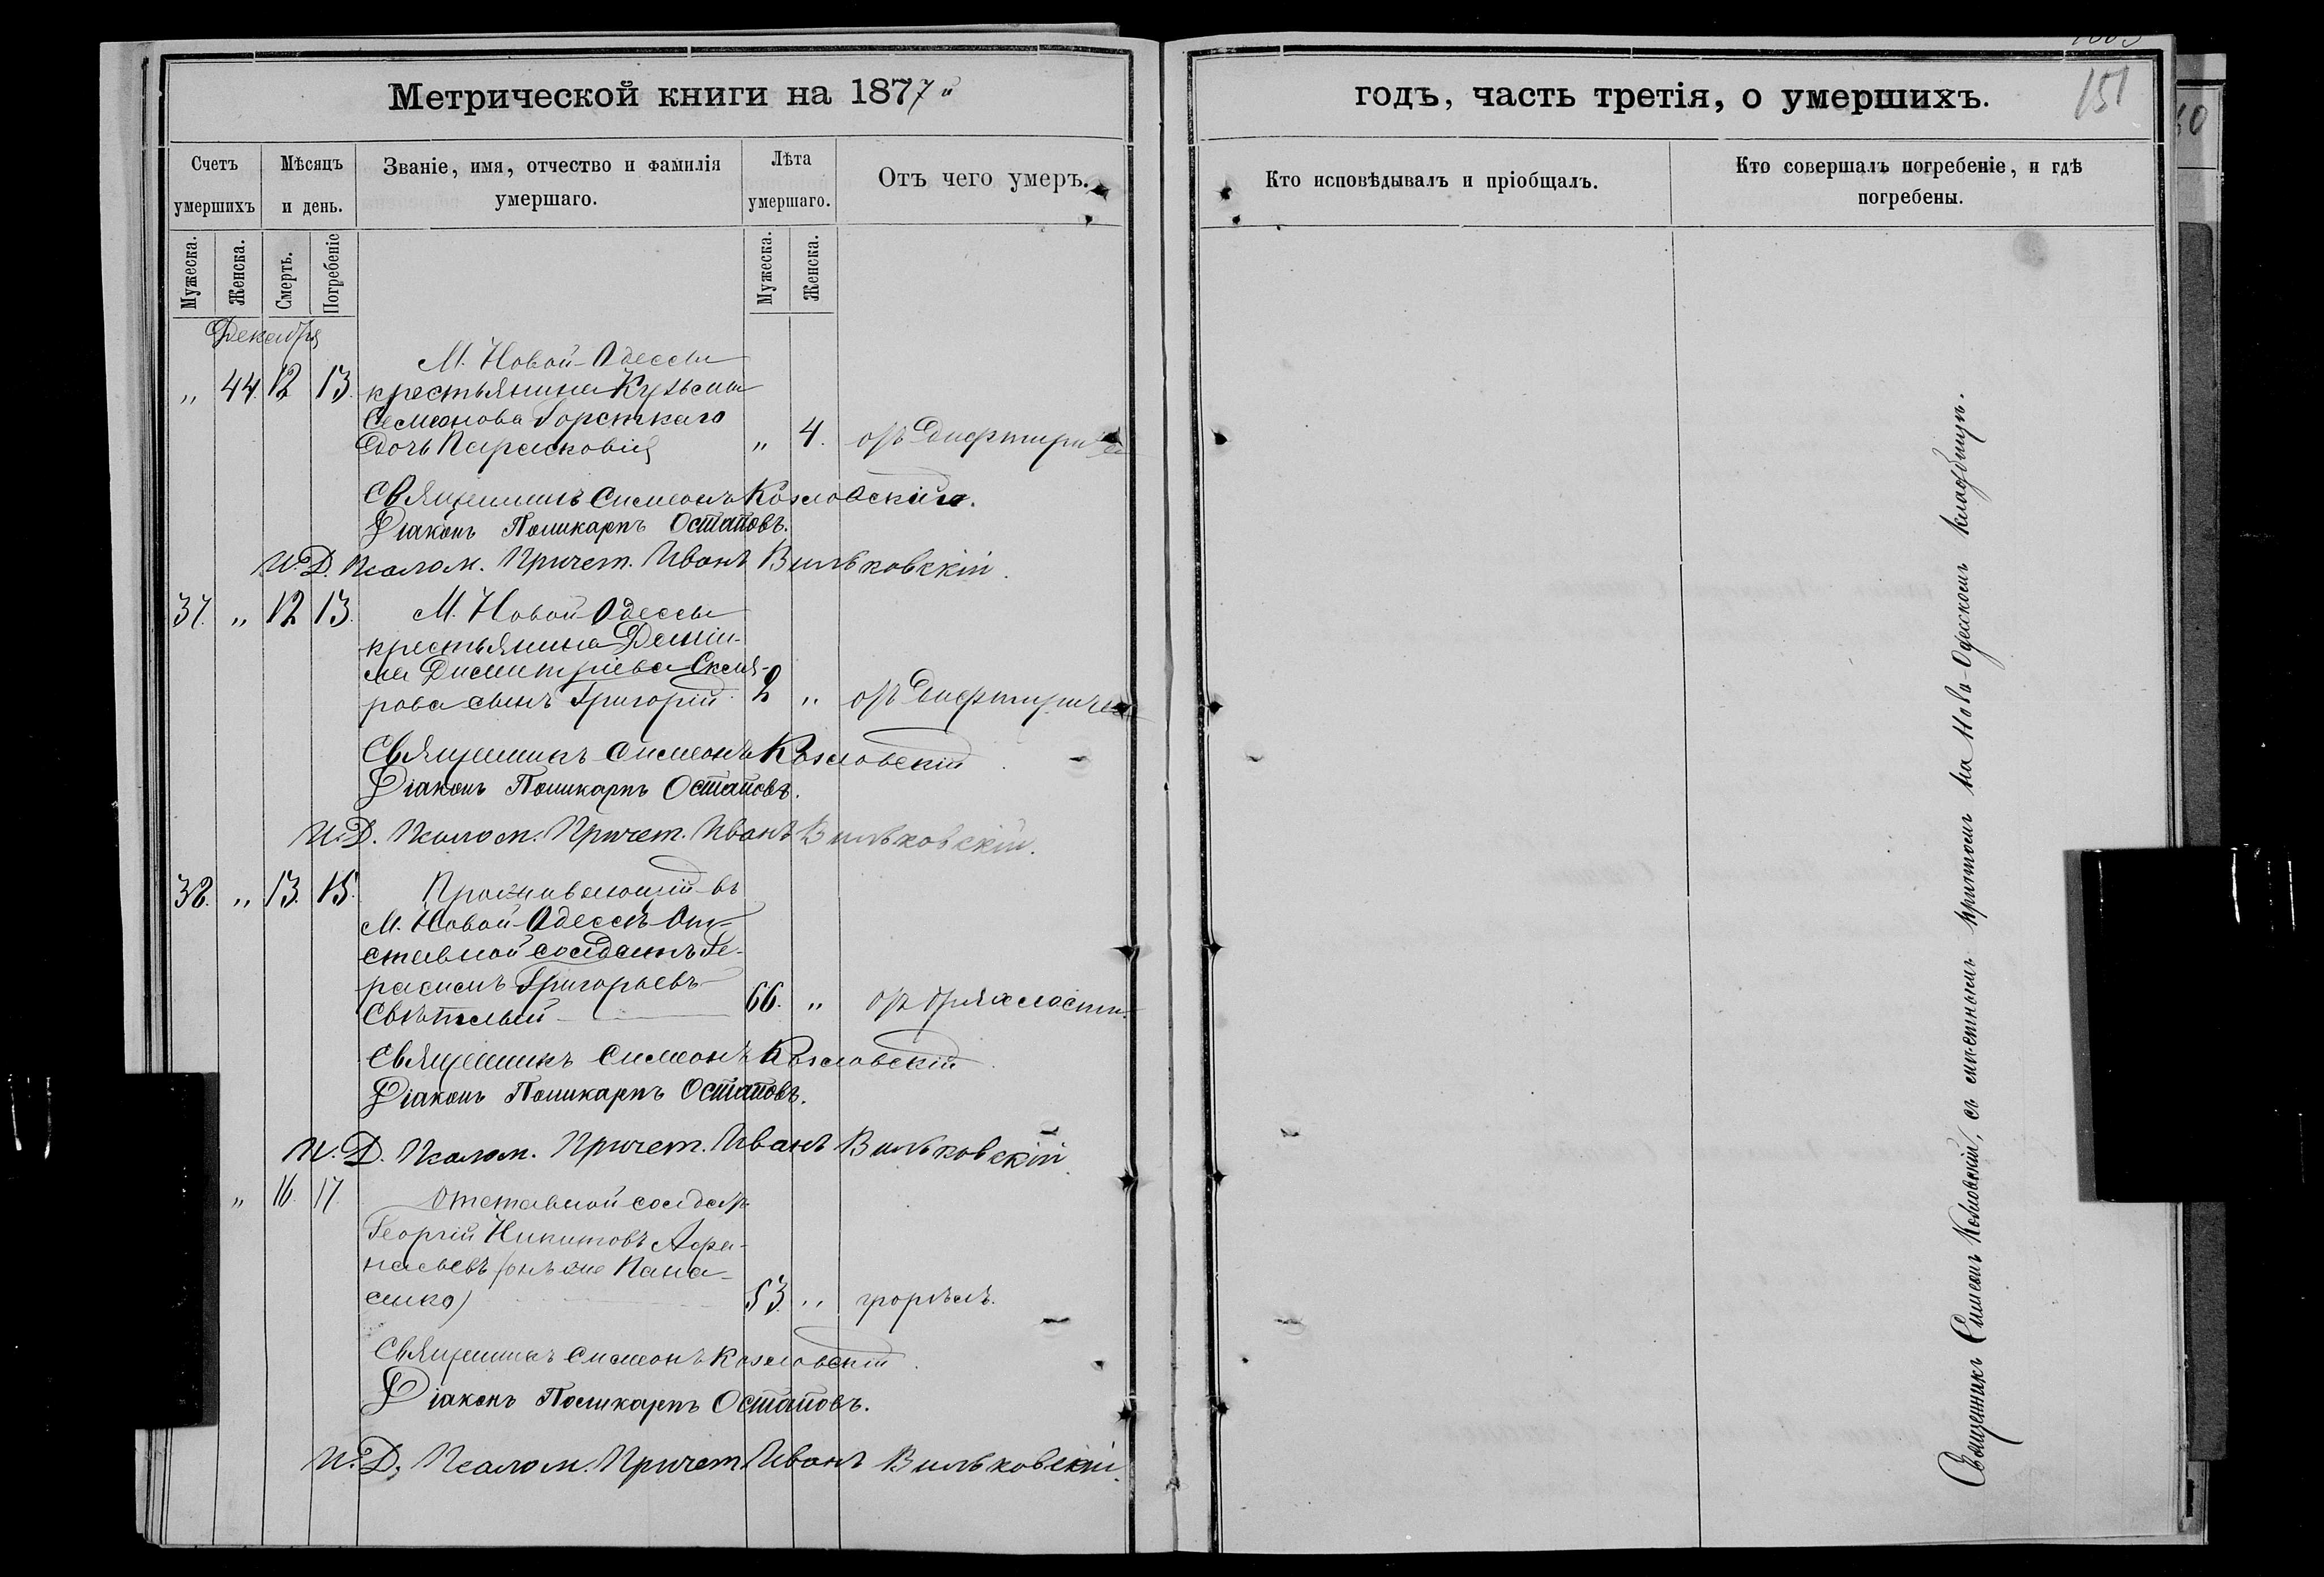 Метрической книги на 1877й
годъ, часть третія, о умершихъ.
151
Счетъ умершихъ
Мѣсяцъ и день.
Званіе, имя, отчество и фамилія умершаго.
Лѣта умершаго.
Отъ чего умеръ.
Кто исповѣдывалъ и пріобщалъ.
Кто совершалъ погребеніе, и гдѣ погребены.
Мужеска.
Женска.
Смерть.
Погребеніе
Мужеска.
Женска.
Декабря
М. Новой-Одессы
„ 44. 12 13. крестьянина Кузьмы
Семенова Горскаго
дочь Парасковія „ 4. отъ дифтирита
Священникъ Симеонъ Козловскій.
Діаконъ Поликарпъ Остаповъ.
И. Д. Псалом. Причет. Иванъ Вильковскій.
37. „ 12 13. М. Новой Одессы
крестьянина Даніи-
ла Димитріева
рова сынъ Григорій. 2 „ отъ дифтирита
Священникъ Симеонъ Козловскій.
Діаконъ Поликарпъ Остаповъ.
И. Д. Псалом. Причет. Иванъ Вильковскій.
38. „ 13. 15. Проживающій въ
М. Новой-Одессѣ От-
ставной солдатъ Ге-
расимъ Григорьевъ
Свѣтлый 66. „ отъ дряхлости.
Священникъ Симеонъ Козловскій.
Діаконъ Поликарпъ Остаповъ.
И. Д. Псалом. Причет. Иванъ Вильковскій.
„ 16. 17. Отставной солдатъ
Георгій Никитовъ Афа-
насьевъ (онъ же Пана-
сенко) 53. „ горѣлъ.
Священникъ Симеонъ Козловскій.
Діаконъ Поликарпъ Остаповъ.
И. Д. Псалом. Причет. Иванъ Вильковскій.
Священникъ Симеонъ Козловскій, съ мѣстнымъ причтомъ на Ново-Одесскомъ кладбищѣ.